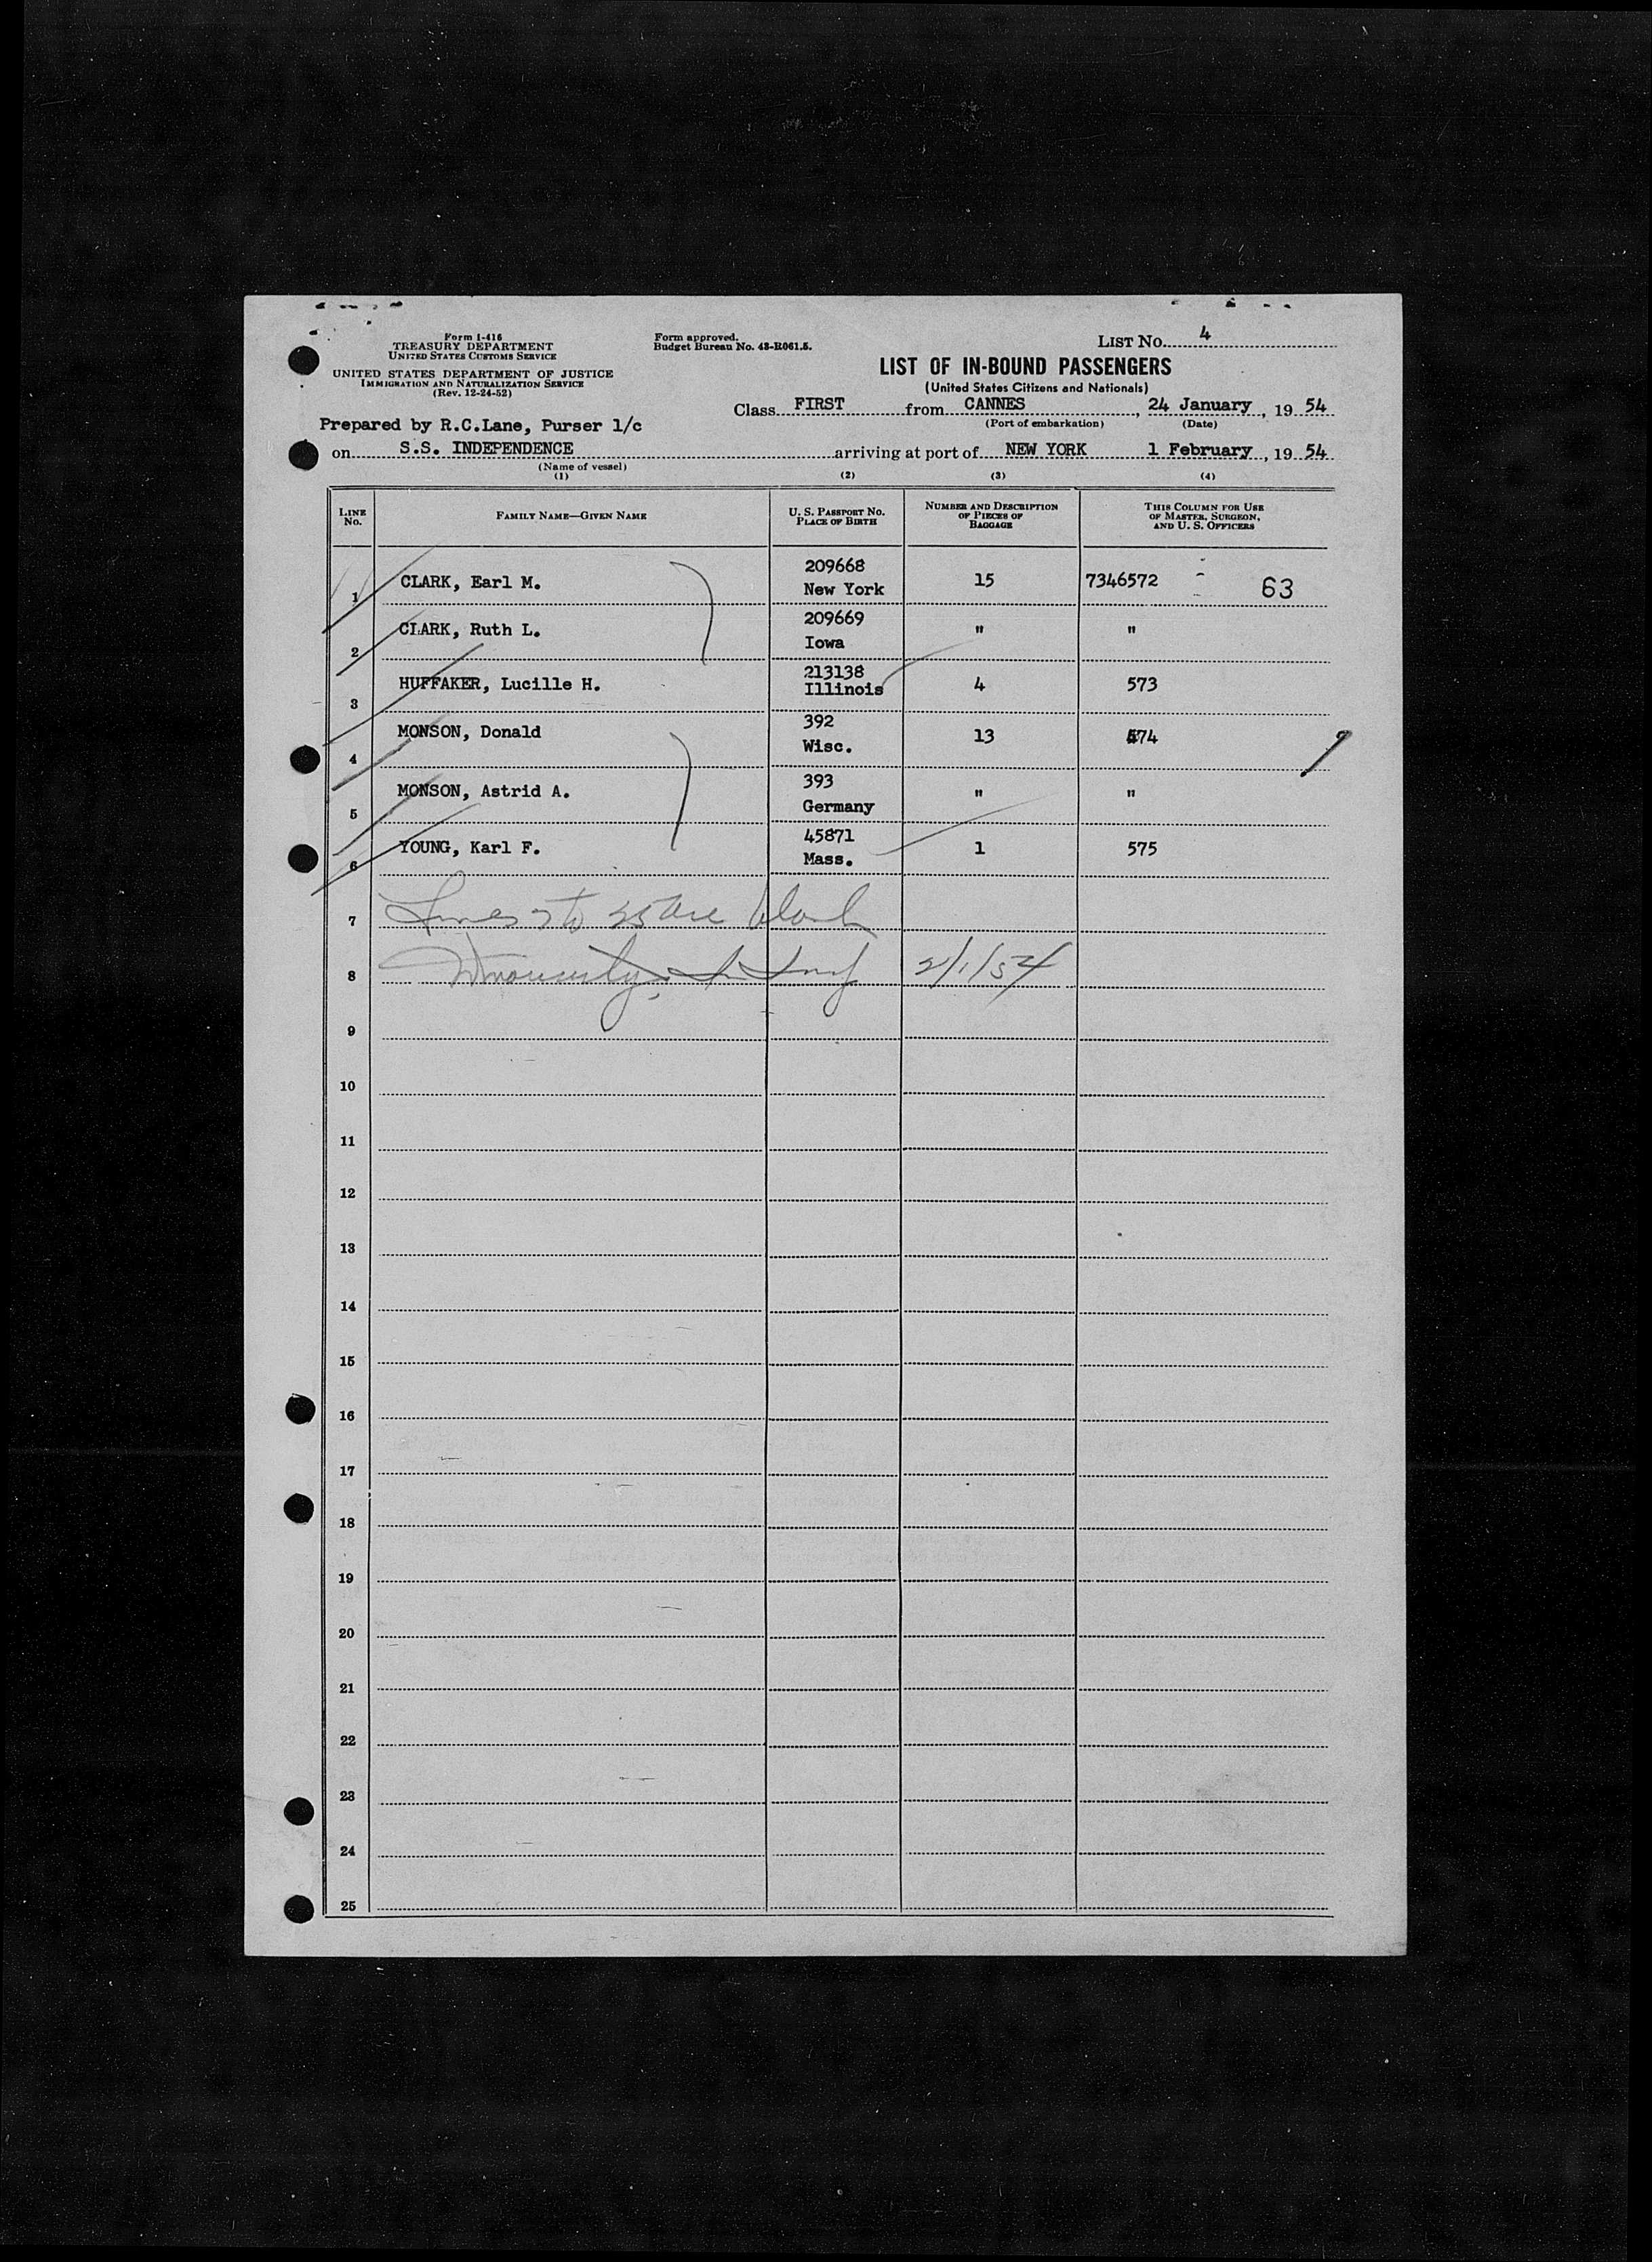 Form I-416
TREASURY DEPARTMENT
UNITED STATES CUSTOMS SERVICE
UNITED STATES DEPARTMENT OF JUSTICE
IMMIGRATION AND NATURALIZATION SERVICE
(Rev. 12-24-52)
Form approved.
Budget Bureau No. 43-R061.5.
LIST No. 4
LIST OF IN-BOUND PASSENGERS
(United States Citizens and Nationals)
Class FIRST from CANNES, 24 January, 19 54
(Port of embarkation) (Date)
Prepared by R.C.Lane, Purser 1/c
on S.S. INDEPENDENCE arriving at port of NEW YORK 1 February, 19 54
(Name of vessel)
(1) (2) (3) (4)
LINE No. FAMILY NAME—GIVEN NAME U. S. PASSPORT NO. PLACE OF BIRTH NUMBER AND DESCRIPTION OF PIECES OF BAGGAGE THIS COLUMN FOR USE OF MASTER, SURGEON, AND U. S. OFFICERS
1 CLARK, Earl M. 209668 New York 15 7346572 63
2 CLARK, Ruth L. 209669 Iowa " "
3 HUFFAKER, Lucille H. 213138 Illinois 4 573
4 MONSON, Donald 392 Wisc. 13 574
5 MONSON, Astrid A. 393 Germany " "
6 YOUNG, Karl F. 45871 Mass. 1 575
7 Lines 7 to 25 are blank
8 2/1/54
9
10
11
12
13
14
15
16
17
18
19
20
21
22
23
24
25